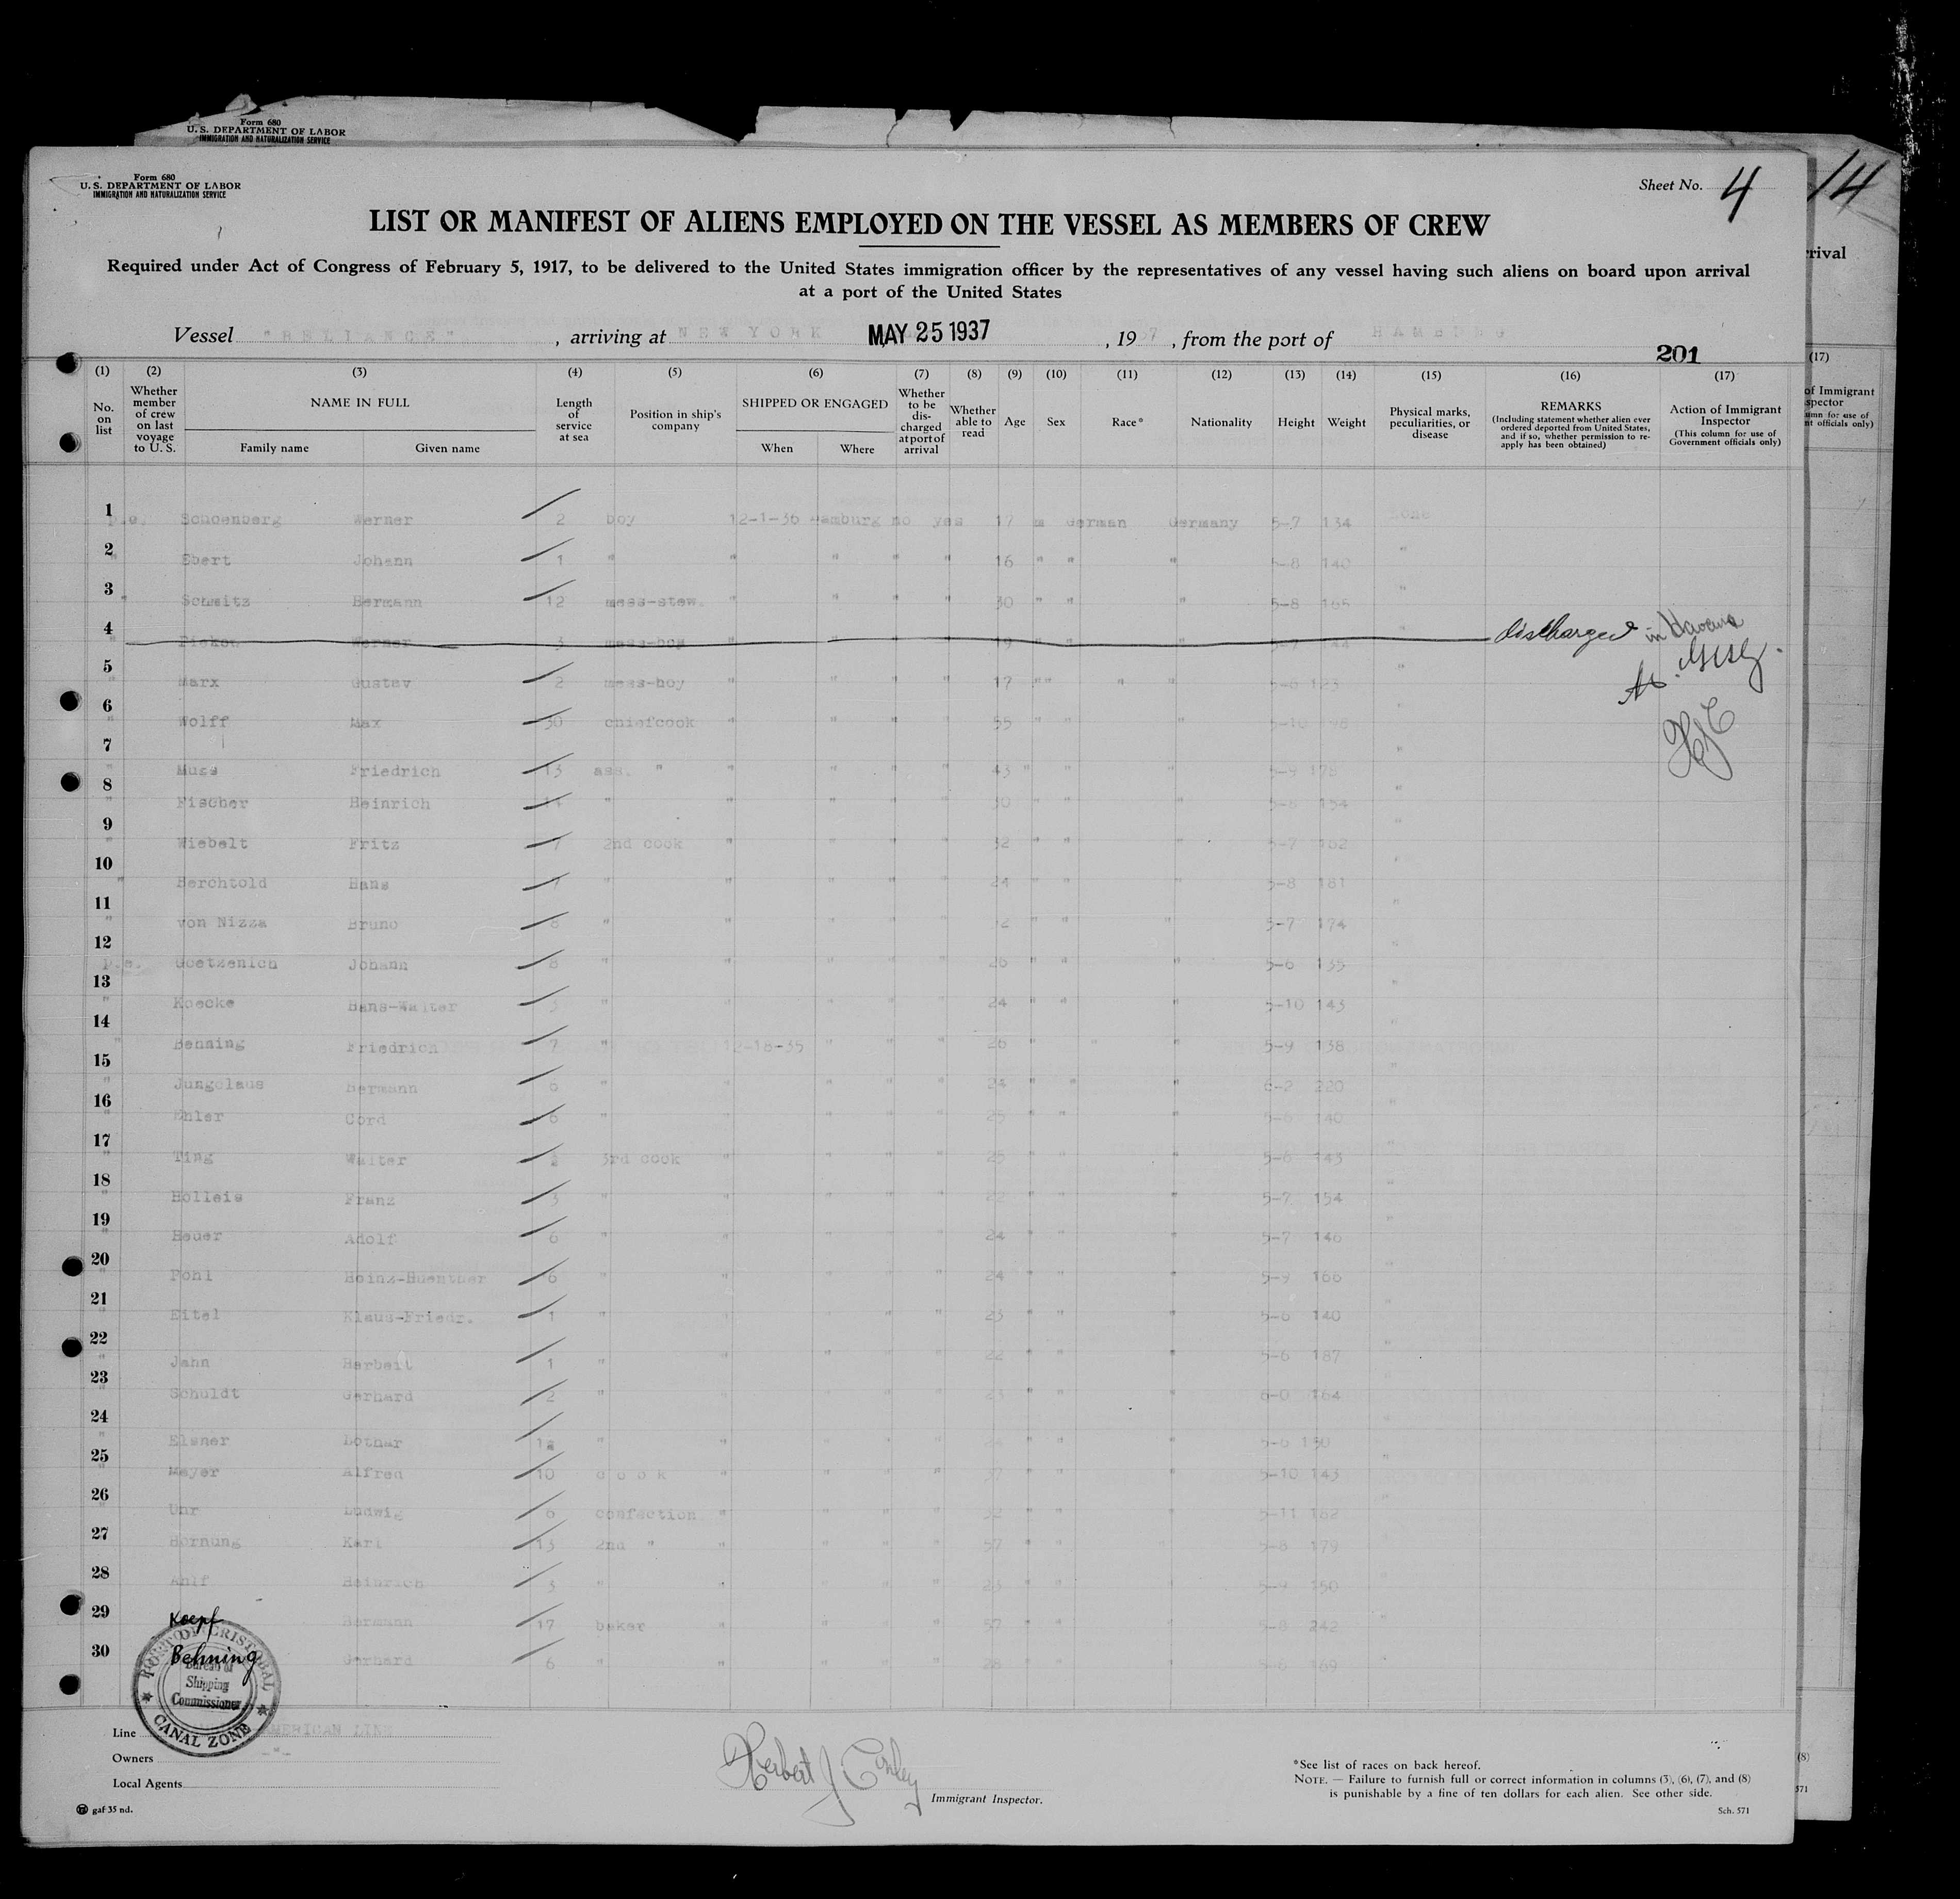 Form 680
U. S. DEPARTMENT OF LABOR
IMMIGRATION AND NATURALIZATION SERVICE
Form 680
U. S. DEPARTMENT OF LABOR
IMMIGRATION AND NATURALIZATION SERVICE
Sheet No. 4
14
LIST OR MANIFEST OF ALIENS EMPLOYED ON THE VESSEL AS MEMBERS OF CREW
Required under Act of Congress of February 5, 1917, to be delivered to the United States immigration officer by the representatives of any vessel having such aliens on board upon arrival
at a port of the United States
Vessel "RELIANCE" , arriving at NEW YORK MAY 25 1937 , 19 37 , from the port of HAMBURG
201
(1) (2) (3) (4) (5) (6) (7) (8) (9) (10) (11) (12) (13) (14) (15) (16) (17)
No. on list
Whether member of crew on last voyage to U. S.
NAME IN FULL
Family name Given name
Length of service at sea
Position in ship's company
SHIPPED OR ENGAGED
When Where
Whether to be discharged at port of arrival
Whether able to read
Age Sex Race* Nationality Height Weight
Physical marks, peculiarities, or disease
REMARKS
(Including statement whether alien ever ordered deported from United States, and if so, whether permission to reapply has been obtained)
Action of Immigrant Inspector
(This column for use of Government officials only)
1 Schoenberg Werner 2 boy 12-1-36 Hamburg no yes 17 m German Germany 5-7 134
2 " Ebert Johann 1 " " " " " 16 " " " 5-8 140 "
3 " Schmitz Hermann 12 mess-stew. " " " " 30 " " " 5-8 165 "
4 " Werner 3 mess-boy 19 " " 5-7 144 discharged in Havana
5 " Marx Gustav 2 mess-boy " " " " 17 " " " " 123 "
6 " Wolff Max 30 chiefcook " " " " 55 " " " 5-10 "
7 " Muss Friedrich 13 ass. " " " " " 43 " " " 5-9 178 "
HJC
8 " Fischer Heinrich " " " " " 30 " " " 5-8 154 "
9 " Wiebelt Fritz 7 2nd cook " " " " 32 " " " 5-7 162 "
10 " Berchtold Hans 7 " " " " " 24 " " " 5-8 181 "
11 " von Nizza Bruno 8 " " " " " " " " 5-7 174 "
12 p.e. Goetzenich Johann 8 " " " " " 26 " " " 5-6 135 "
13 " Koecke Hans-Walter 3 " " " " " 24 " " " 5-10 143 "
14 " Benning Friedrich 7 " 12-18-35 " " " 26 " " " 5-9 138 "
15 " Jungclaus Hermann 6 " " " " " 24 " " " 6-2 220 "
16 " Ehler Cord 6 " " " " " 25 " " " 5-6 140 "
17 " Ting Walter 3rd cook " " " " 25 " " " 5-6 143 "
18 " Holleis Franz 3 " " " " " 22 " " " 5-7 154 "
19 " Bauer Adolf 6 " " " " " 24 " " " 5-7 146 "
20 " Pohl Heinz-Guenther 6 " " " " " 24 " " " 5-9 166 "
21 " Eitel Klaus-Friedr. 1 " " " " 23 " " " 5-6 140
22 " Jahn Herbert 1 " " " " " 22 " " " 5-6 187 "
23 " Schuldt Gerhard 2 " " " " 23 " " " 6-0 164 "
24 " Elsner Lothar " " " " " " " " 5-6 "
25 " Meyer Alfred 10 cook " " " " 37 " " " 5-10 143 "
26 " Uhr Ludwig 6 confection. " " " " 32 " " " 5-11 162 "
27 " Hornung Karl 13 2nd " " " " " 57 " " " 5-8 179
28 " Ahlf Heinrich 3 " " " " " 23 " " " 5-9 150 "
29 Koepf Hermann 17 baker " " " " 57 " " " 5-8 242 "
30 Behning Gerhard 6 " " " " " 28 " " " 5-6 169 "
PORT OF CRISTOBAL
Bureau of
Shipping
Commissioner
CANAL ZONE
Line AMERICAN LINE
Owners -"-
Local Agents
Herbert J Conley
Immigrant Inspector.
*See list of races on back hereof.
NOTE. — Failure to furnish full or correct information in columns (3), (6), (7), and (8)
is punishable by a fine of ten dollars for each alien. See other side.
gaf 35 nd.
Sch. 571